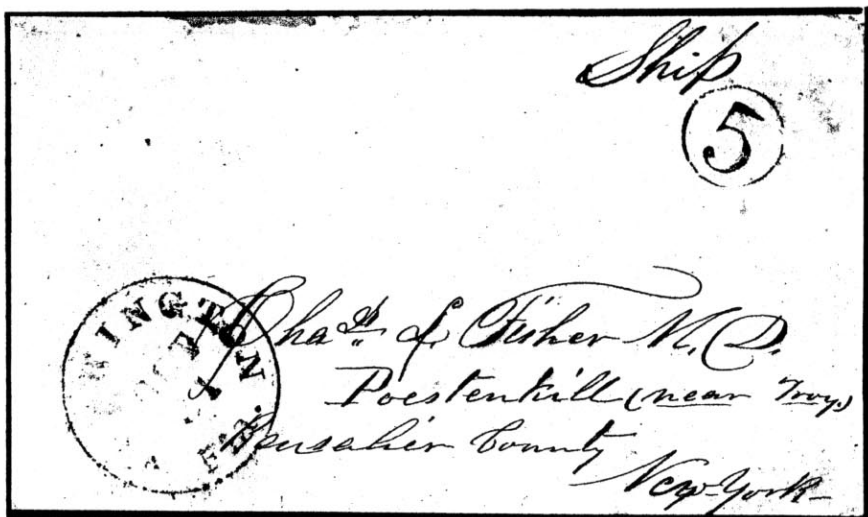 Ship
5
INGTON
Chas. L. Fisher M. D.
Poestenkill (near Troy)
County
New-York